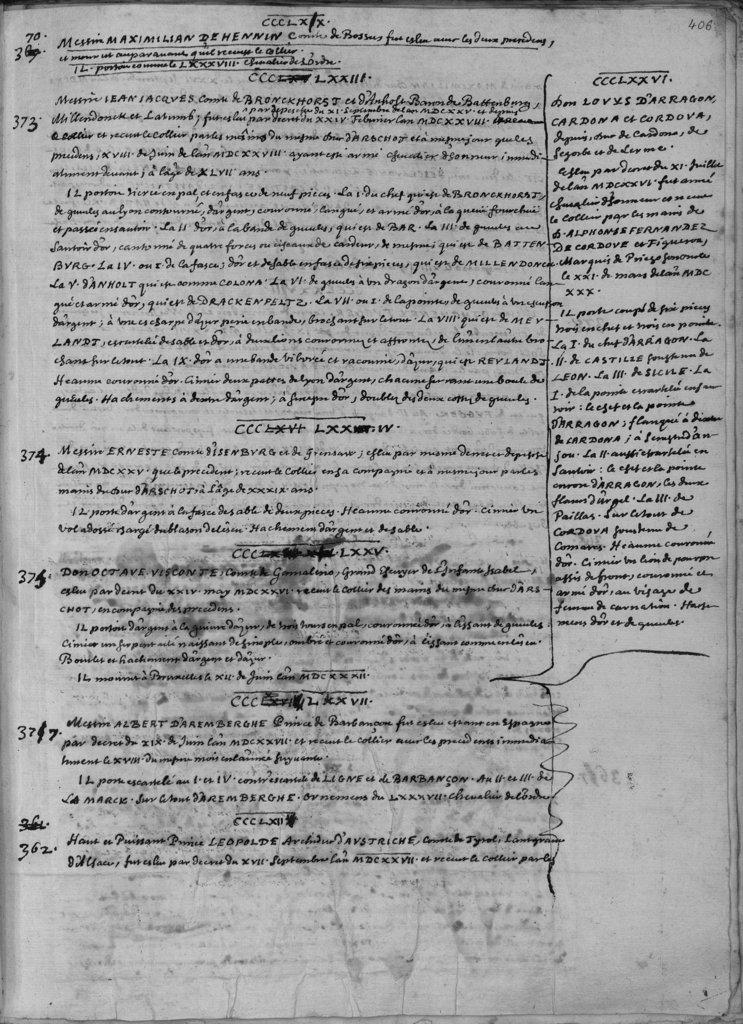 406
CCCLXIX
70.
369 Messire MAXIMILIAN DE HENNIN Comte de Bossus fut esleu avec les deux precedens,
et mourut auparavant qu'il receut le collier.
IL portoit comme le LXXXVIII chevalier de l'ordre.
CCCLXXIII.
Messire IEAN IACQVES Comte de BRONCKHORST et d'Anholt Baron de Battenburg,
par depesche du XI. Septembre de l'an MDCXXV et depuis
373 Millendonck et ; fut esleu par decret du XXIV Febvrier l'an MDCXXVIII
collier et receut le collier par les mains du mesme Duc d'ARSCHOT et à mesme jour que les
precedens, XVIII de Juin de l'an MDCXXVIII ayant esté armé chevalier d'honneur immedi-
atement devant ; à l'age de XLVII ans.
IL portoit tiercé en pal et en fasce de neuf pieces. La I. du chef qui est de BRONCKHORST,
de gueules au lyon contourné, d'argent, couronné, langué, et armé d'or, à la queue fourchue
et passée en sautoir. La II. d'or, à la bande de gueules, qui est de BAR. La III. de gueules au
Sautoir d'or, cantonné de quatre forces ou ciseaux de cardeur, de mesme, qui est de BATTEN
BVRG. La IV. ou I. de la fasce, d'or et de sable en fasce de six pieces, qui est de MILLENDONCK
La V. d'ANHOLT qui est comme COLONA. La VI. de gueules à un dragon d'argent, couronné lan
gué et armé d'or, qui est de DRACKENFELTZ. La VII. ou I. de la pointe, de gueules à un
d'argent ; à une escharpe d'azur perie en bande, brochant sur le tout. La VIII. qui est de MEV
LANDT, escartelé de sable et d'or, à deux lions couronnés et affrontés, de l'un en l'autre bro
chant sur le tout. La IX. d'or à une bande vivrée et , d'azur, qui est REVLANDT.
Heaume couronné d'or. Cimier deux pattes de lyon d'argent, chacune serrant une boule de
gueules. Hachements à dextre d'argent ; à senestre d'or, doublez des deux costez de gueules.
CCCLXXIV
374 Messire ERNESTE Comte d'ISENBVRG et de Grensaw ; esleu par mesme decret et depesche
de l'an MDCXXV que le precedent ; receut le Collier en sa compagnie et à mesme jour par les
mains du Duc d'ARSCHOT ; à l'age de XXXIX ans.
IL porte d'argent à la fasce de sable de deux pieces. Heaume couronné d'or. Cimier un
vol adossé chargé du blason de l'escu. Hachement d'argent et de sable.
CCCLXXV.
375 DON OCTAVE VISCONTE, Comte de Gamalerio, Grand Escuyer de l'Infante Isabel ;
esleu par decret du XXIV. may MDCXXVI. receut le Collier des mains du mesme Duc d'ARS
CHOT, en compagnie des precedens.
IL portoit d'argent à la guivre d'azur, de trois tours en pal, couronnée d'or, à l'issant de gueules
Cimier un serpent ailé naissant de sinople, ombré et couronné d'or, à l'issant comme en l'escu.
Bourlet et hachement d'argent et d'azur.
IL mourut à Bruxelles le XII. de Juin l'an MDCXXXII.
CCCLXXVII.
377. Messire ALBERT D'AREMBERGHE Prince de Barbançon fut esleu estant en Espagne
par decret du XIX. de Juin l'an MDCXXVII. et receut le collier avec les precedents immedia-
tement le XVIII. du mesme mois en l'année suyvante.
IL porte escartelé au I. et IV. contrescartelé de LIGNE et de BARBANÇON. Au II. et III. de
LA MARCK. Sur le tout D'AREMBERGHE. Ornemens du LXXXVII. Chevalier de l'ordre
CCCLXII
361.
362. Haut et Puissant Prince LEOPOLDE Archiduc D'AVSTRICHE, Comte de Tyrol, Lantgrave
d'Alsace, fut esleu par decret du XVII. Septembre l'an MDCXXVII. et receut le collier par les
CCCLXXVI.
Don LOVYS D'ARRAGON,
CARDONA et CORDOVA,
depuis Duc de Cardona, de
Segorbe et de Lerme.
esleu par decret du XI. Juillet
de l'an MDCXXVI. fut armé
chevalier d'honneur et receut
le collier par les mains de
D. ALPHONSE FERNANDEZ
DE CORDOVE et Figueroa,
Marquis de Priego
le XXI. de mars de l'an MDC
XXX.
IL porte coupé de six pieces
trois en chef et trois en pointe.
La I. du chef D'ARRAGON. La
II. de CASTILLE soustenu de
LEON. La III. de SICILE. La
I. de la pointe escartelé en sau
toir : le chef et la pointe
D'ARRAGON ; flanqué à dextre
de CARDONA ; à senestre d'An
jou. La II. aussi escartelé en
Sautoir : le chef et la pointe
encore d'ARRAGON ; les deux
flancs d'Urgel. La III. de
Paillas. Sur le tout de
CORDOVA soustenu de
Comares. Heaume couronné
d'or. Cimier un lion de pourpre
assis de front, couronné et
armé d'or, au visage de
femme de carnation. Hache
mens d'or et de gueules.